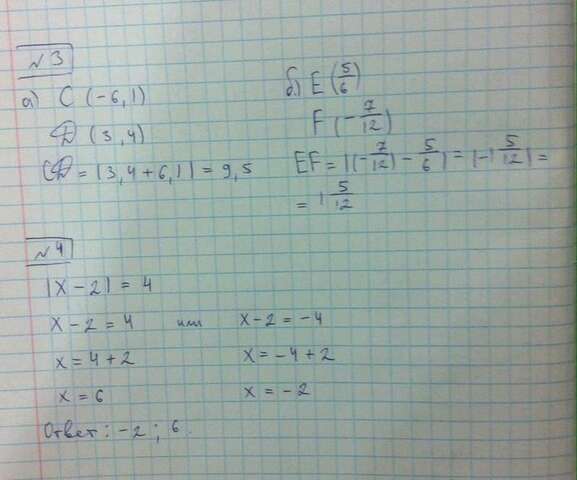 № 3
а) C (-6,1)
D (3,4)
CD = |3,4 + 6,1| = 9,5
б) E (5/6)
F (-7/12)
EF = |(-7/12) - 5/6| = |-1 5/12| =
= 1 5/12
№ 4
|x - 2| = 4
x - 2 = 4 или x - 2 = -4
x = 4 + 2 x = -4 + 2
x = 6 x = -2
Ответ: -2; 6.